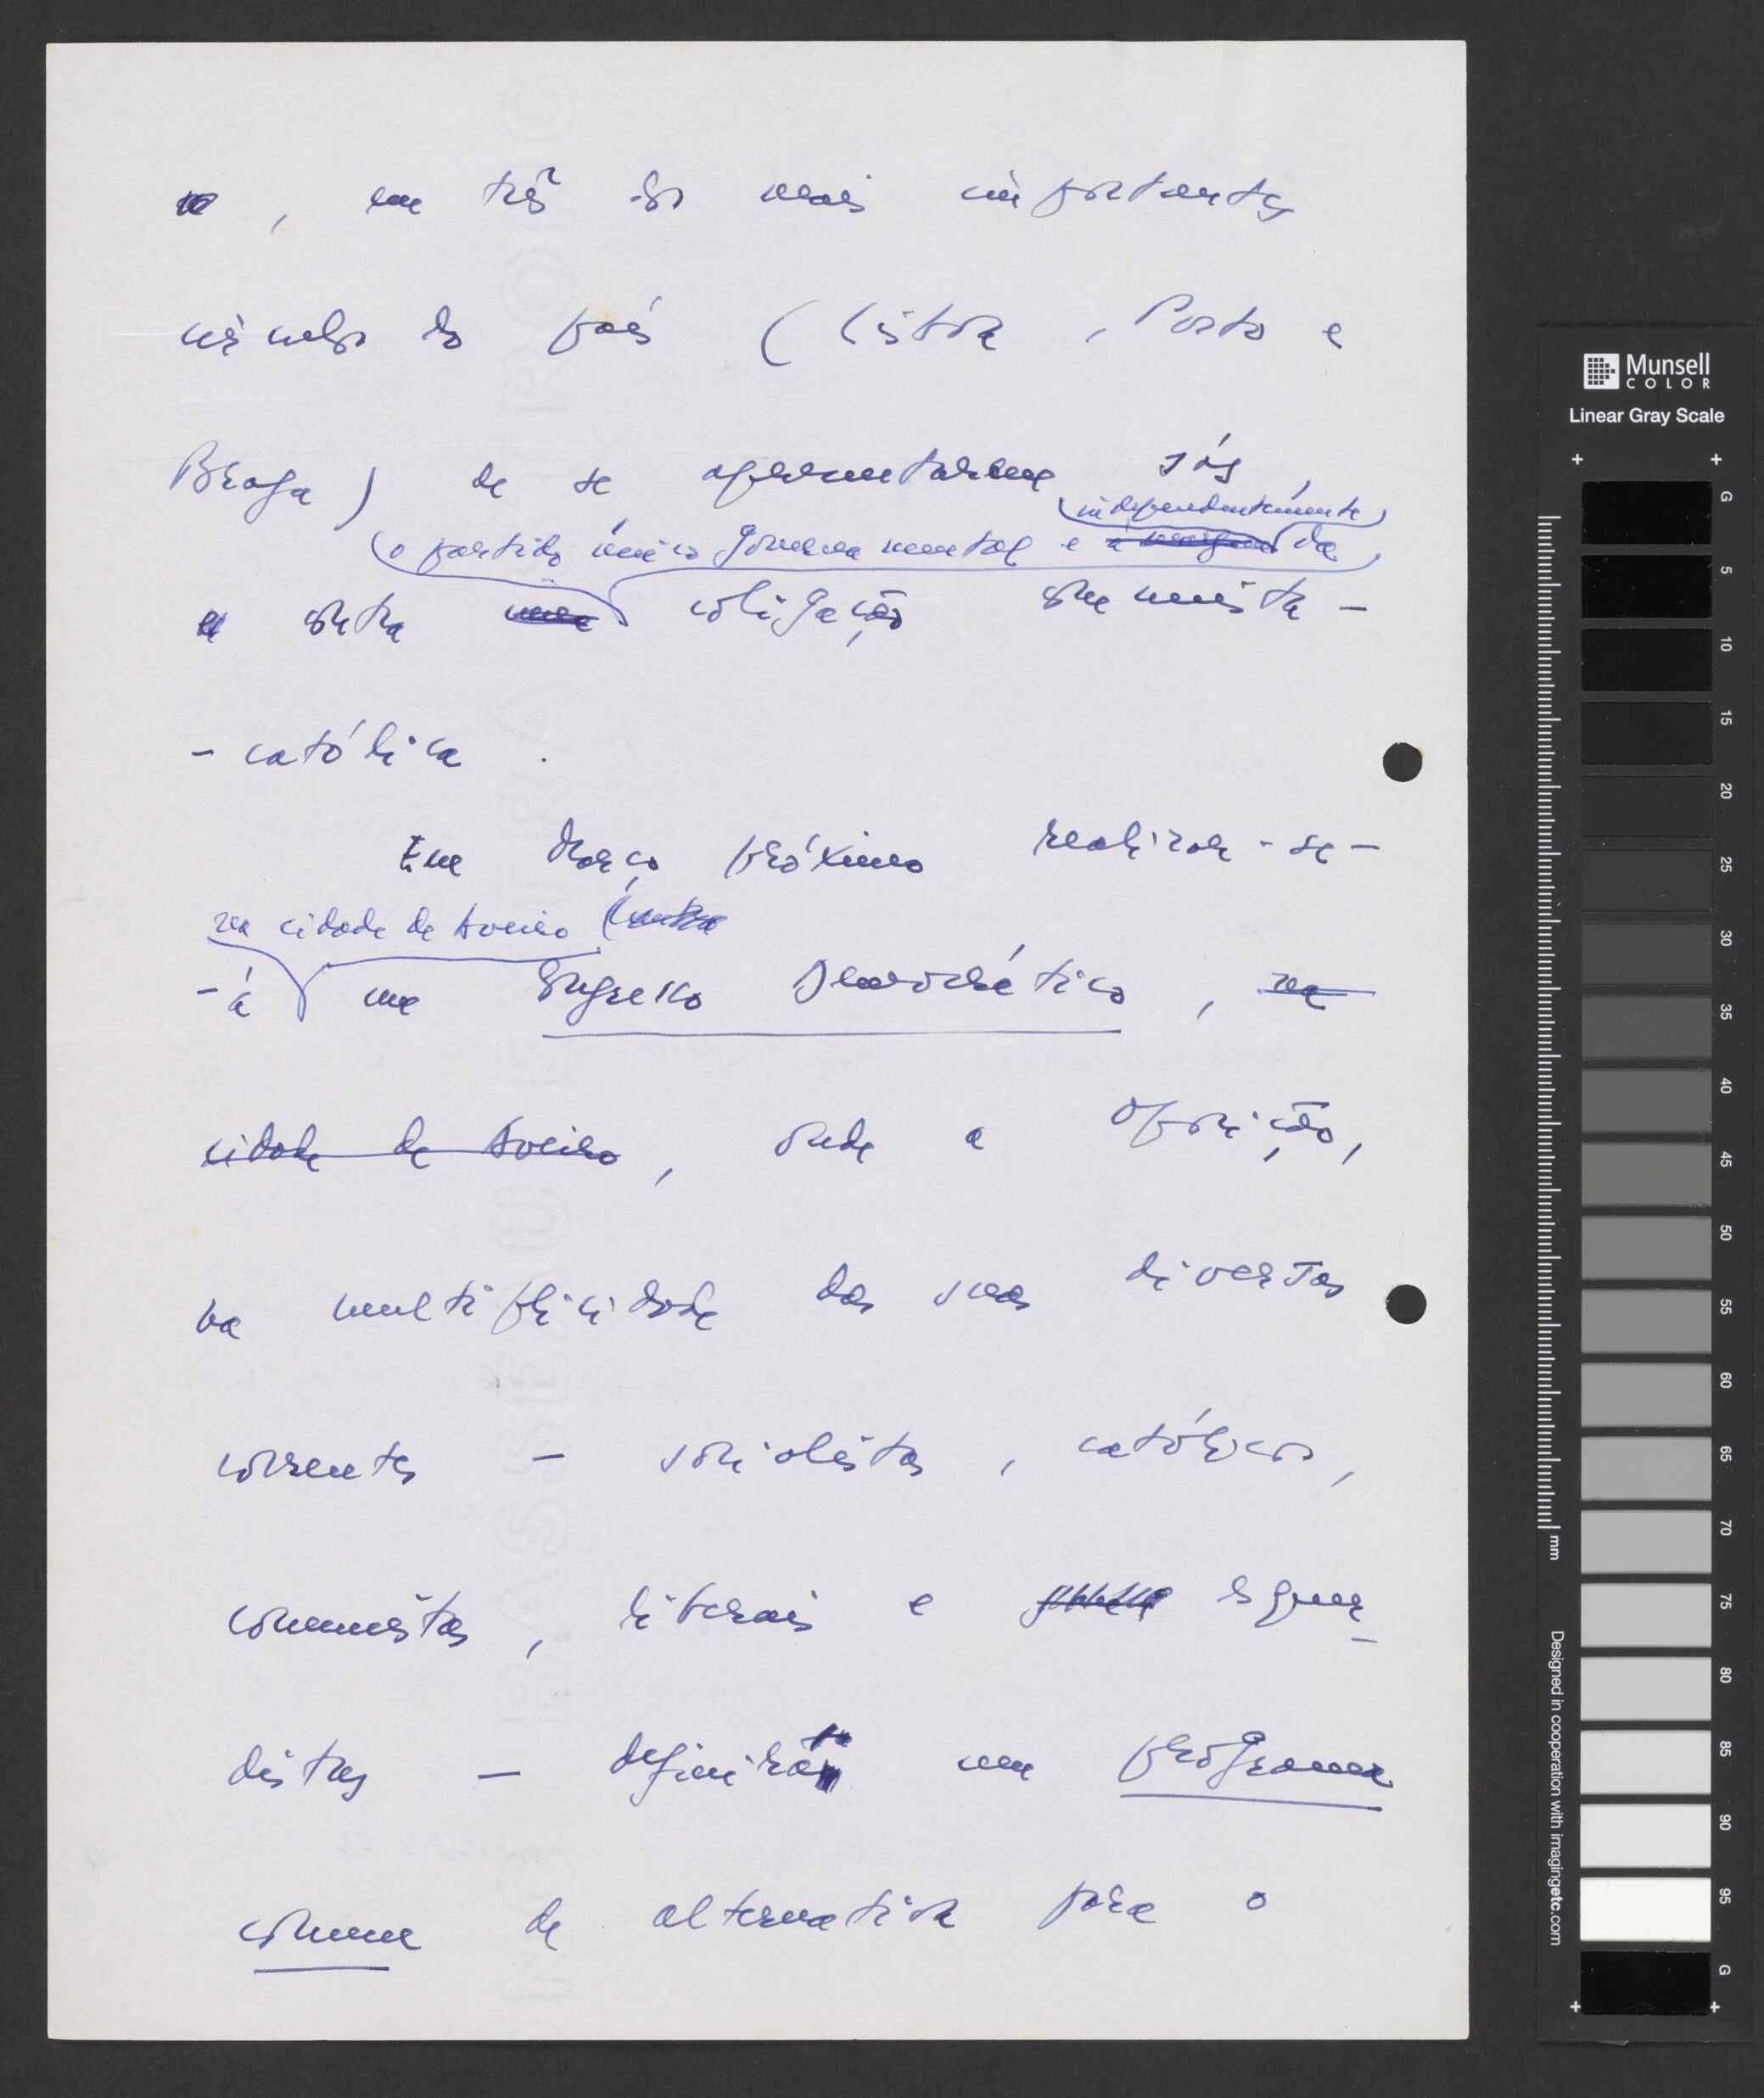 , em três dos mais importantes
círculos do país (Lisboa, Porto e
Braga) de se apresentarem sós,
independentemente
o partido único governamental e à margem da
contra uma coligação comunista-
-católica.
Em Março próximo realizar-se-
na cidade de Aveiro (contra
-á um Congresso Democrático, na
cidade de Aveiro, onde a Oposição,
na multiplicidade das suas diversas
correntes – socialistas, católicos,
comunistas, liberais e esquer-
distas – definirá um programa
comum de alternativa para o
Munsell
COLOR
Linear Gray Scale
G
5
10
15
20
25
30
35
40
45
50
55
60
65
70
75
80
85
90
95
G
mm
Designed in cooperation with imagingetc.com